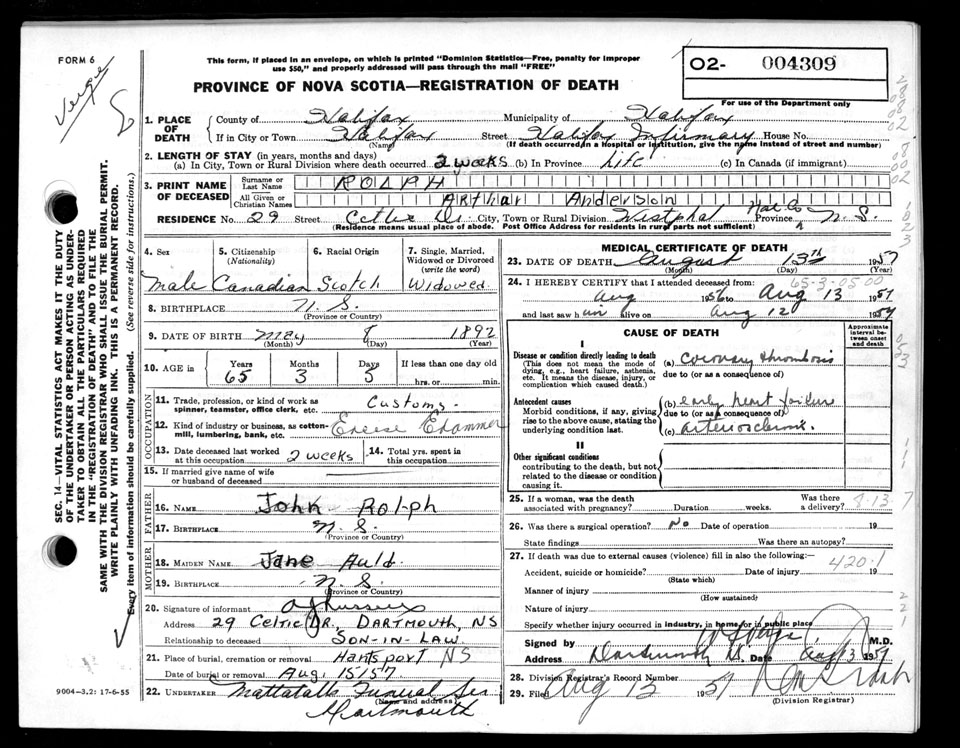 FORM 6
This form, if placed in an envelope, on which is printed "Dominion Statistics—Free, penalty for improper
use $50," and properly addressed will pass through the mail "FREE"
O2- 004309
For use of the Department only
PROVINCE OF NOVA SCOTIA—REGISTRATION OF DEATH
SEC. 14—VITAL STATISTICS ACT MAKES IT THE DUTY
OF THE UNDERTAKER OR PERSON ACTING AS UNDER-
TAKER TO OBTAIN ALL THE PARTICULARS REQUIRED
IN THE "REGISTRATION OF DEATH" AND TO FILE THE
SAME WITH THE DIVISION REGISTRAR WHO SHALL ISSUE THE BURIAL PERMIT.
WRITE PLAINLY WITH UNFADING INK. THIS IS A PERMANENT RECORD.
Every item of information should be carefully supplied. (See reverse side for instructions.)
1. PLACE OF DEATH
County of Halifax Municipality of Halifax
If in City or Town Halifax Street Halifax Infirmary House No.
(Name) (If death occurred in a Hospital or institution, give the name instead of street and number)
2. LENGTH OF STAY (in years, months and days)
(a) In City, Town or Rural Division where death occurred 2 weeks (b) In Province Life (c) In Canada (if immigrant)
3. PRINT NAME OF DECEASED
Surname or Last Name ROLPH
All Given or Christian Names Arthur Anderson
RESIDENCE No. 29 Street Celtic Dr. City, Town or Rural Division Westphal Hal Co Province N.S.
(Residence means usual place of abode. Post Office Address for residents in rural parts not sufficient)
4. Sex Male
5. Citizenship (Nationality) Canadian
6. Racial Origin Scotch
7. Single, Married, Widowed or Divorced (write the word) Widowed
8. BIRTHPLACE N.S.
(Province or Country)
9. DATE OF BIRTH May 8 1892
(Month) (Day) (Year)
10. AGE in Years 65 Months 3 Days 5 If less than one day old
hrs. or min.
OCCUPATION
11. Trade, profession, or kind of work as
spinner, teamster, office clerk, etc. Customs.
12. Kind of industry or business, as cotton-
mill, lumbering, bank, etc. Excise Examiner
13. Date deceased last worked
at this occupation 2 weeks
14. Total yrs. spent in
this occupation
15. If married give name of wife
or husband of deceased
FATHER
16. NAME John Rolph
17. BIRTHPLACE N.S.
(Province or Country)
MOTHER
18. MAIDEN NAME Jane Auld
19. BIRTHPLACE N.S.
(Province or Country)
20. Signature of informant
Address 29 Celtic DR., DARTMOUTH, NS
Relationship to deceased SON-IN-LAW
21. Place of burial, cremation or removal Hantsport NS
Date of burial or removal Aug. 15/57
22. UNDERTAKER Mattatalls Funeral Ser
(Name and address)
Dartmouth
9004-3.2: 17-6-55
MEDICAL CERTIFICATE OF DEATH
23. DATE OF DEATH August 13th 1957
(Month) (Day) (Year)
65-3-05-00
24. I HEREBY CERTIFY that I attended deceased from:
Aug 1956 to Aug 13 1957
and last saw him alive on Aug 12 1957
CAUSE OF DEATH
Approximate interval between onset and death
I
Disease or condition directly leading to death
(This does not mean the mode of
dying, e.g., heart failure, asthenia,
etc. It means the disease, injury, or
complication which caused death.)
(a) coronary thrombosis
due to (or as a consequence of)
Antecedent causes
Morbid conditions, if any, giving
rise to the above cause, stating the
underlying condition last.
(b) early heart failure
due to (or as a consequence of)
(c) arteriosclerosis.
II
Other significant conditions
contributing to the death, but not
related to the disease or condition
causing it
25. If a woman, was the death
associated with pregnancy? Duration weeks. Was there
a delivery?
26. Was there a surgical operation? No Date of operation 19
State findings Was there an autopsy?
27. If death was due to external causes (violence) fill in also the following:
420.1
Accident, suicide or homicide? Date of injury 19
(State which)
Manner of injury
(How sustained)
Nature of injury
Specify whether injury occurred in industry, in home, or in public place
Signed by M.D.
Address Dartmouth Date Aug 13 1957
28. Division Registrar's Record Number
29. Filed Aug 13 1957
(Division Registrar)